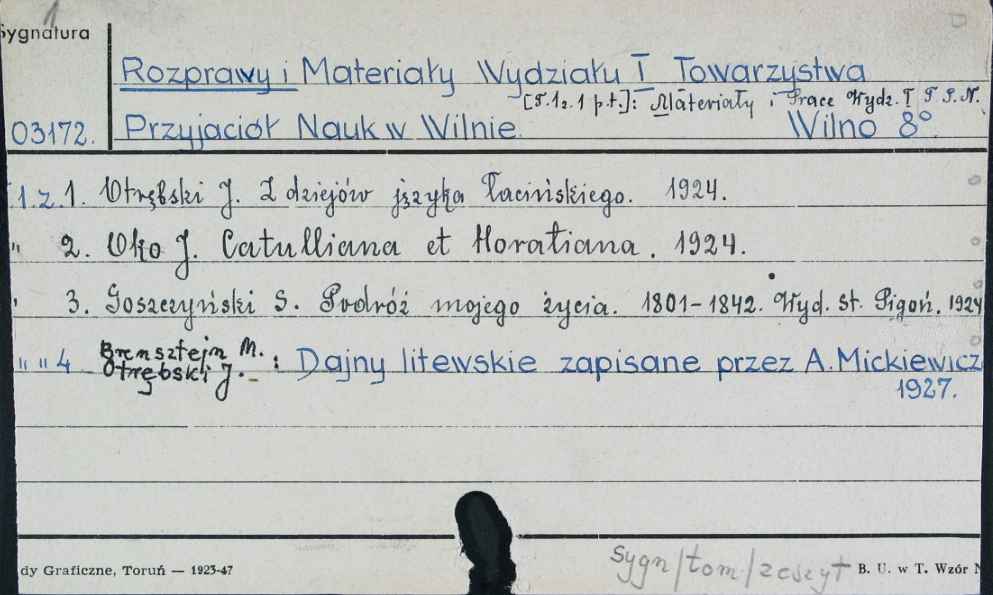 1
Sygnatura
Rozprawy i Materiały Wydziału I Towarzystwa
[T.1z.1 p.t.]: Materiały i Prace Wydz. I T.P.N.
03172. Przyjaciół Nauk w Wilnie. Wilno 8°.
T.1.z.1. Otrębski J. Z dziejów języka łacińskiego. 1924.
" 2. Oko J. Catulliana et Horatiana. 1924.
" 3. Goszczyński S. Podróż mojego życia. 1801-1842. Wyd. St. Pigoń. 1924
" " 4 Brensztejn M.
Otrębski J. : Dajny litewskie zapisane przez A. Mickiewicz
1927.
sygn/tom/zeszyt
dy Graficzne, Toruń — 1923-47 B. U. w T. Wzór N